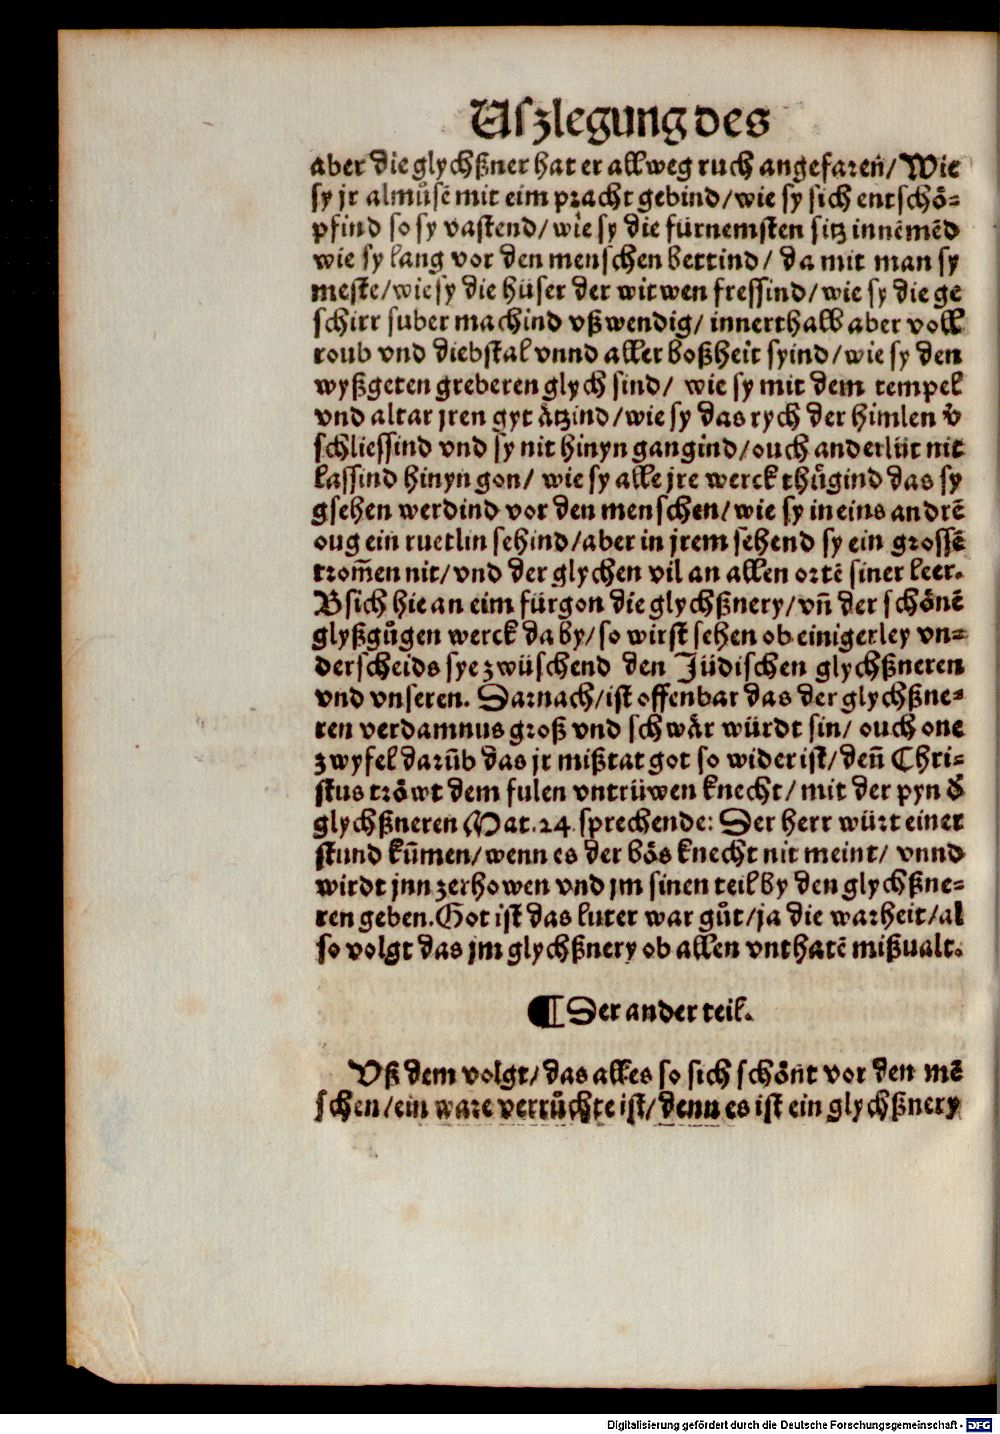 Uſzlegung des
aber die glychßner hat er allweg ruch angefaren/ Wie
sy jr almůsẽ mit eim pracht gebind/wie sy sich entschö⸗
pfind so sy vastend/wie sy die fürnemsten sitz innẽmẽd
wie sy lang vor den menschen bettind/ da mit man sy
meste/wie sy die hüser der witwen fressind/wie sy die ge
schirr suber machind vßwendig/ innerthalb aber voll
roub vnd diebstal vnnd aller boßheit syind/wie sy den
wyßgeten greberen glych sind/ wie sy mit dem tempel
vnd altar jren gyt ätzind/wie sy das rych der himlen v̾
schliessind vnd sy nit hinyn gangind/ouch ander lüt nit
lassind hinyn gon/ wie sy alle jre werck thůgind das sy
gsehen werdind vor den menschen/wie sy in eins andrẽ
oug ein ruetlin sehind/aber in jrem sehend sy ein grossẽ
trom̃en nit/vnd der glychen vil an allen ortẽ siner leer.
Bsich hie an eim fürgon die glychßnery/vñ der schönẽ
glyßgůgen werck da by/so wirst sehen ob einigerley vn⸗
derscheids sye zwüschend den Jüdischen glychßneren
vnd vnseren. Darnach/ist offenbar das der glychßne⸗
ren verdamnus groß vnd schwär würdt sin/ ouch one
zwyfel darũb das jr mißtat got so wider ist/deñ Chri⸗
stus tröwt dem fulen vntrüwen knecht/ mit der pyn d̾
glychßneren Mat.24.sprechende: Der herr würt einer
stund kũmen/wenn es der bös knecht nit meint/ vnnd
wirdt jnn zerhowen vnd jm sinen teil by den glychßne⸗
ren geben.Got ist das luter war gůt/ja die warheit/al
so volgt das jm glychßnery ob allen vnthatẽ mißualt.
¶ Der ander teil.
Vß dem volgt/das alles so sich schönt vor den mẽ
schen/ein ware verrůchte ist/denn es ist ein glychßnery
Digitalisierung gefördert durch die Deutsche Forschungsgemeinschaft - DFG